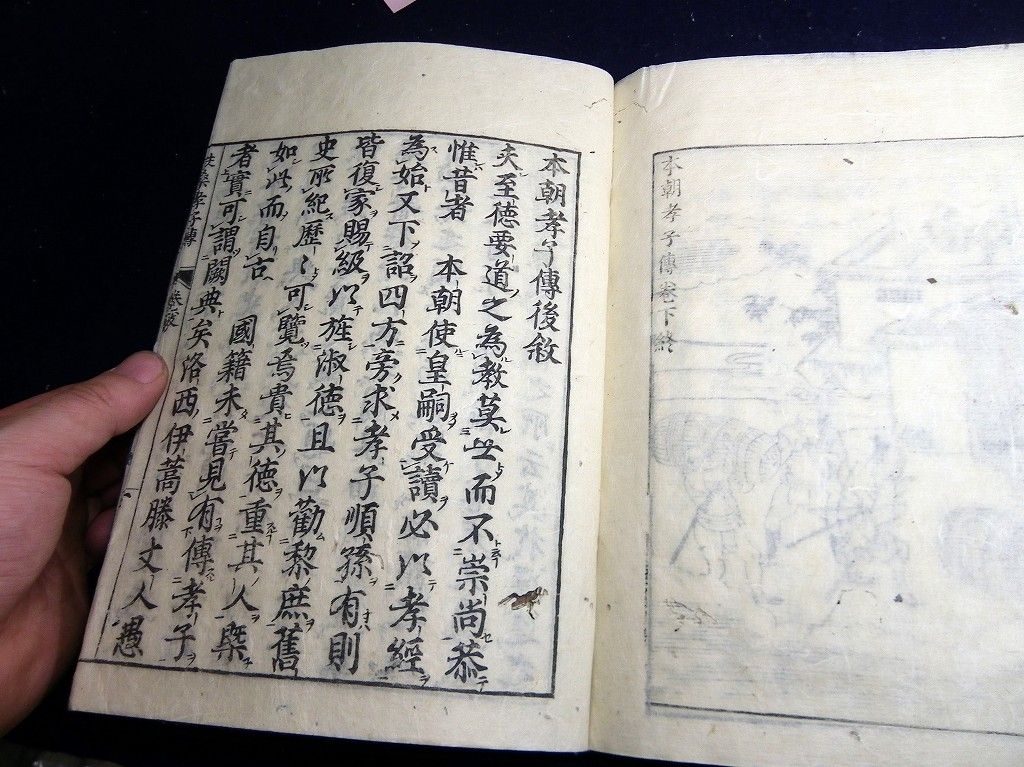 本朝孝子傳卷下終
本朝孝子傳後敘
夫至德要道之為教莫世而不崇尚恭
惟昔者 本朝使皇嗣受讀必以孝經
為始又下詔四方旁求孝子順孫有則
皆復家賜級以旌淑德且以勸黎庶舊
史所紀歷〻可覽焉貴其德重其人槩
如此而自古 國籍未嘗見有傳孝子
者實可謂闕典矣洛西伊蒿藤丈人愚
孝子傳